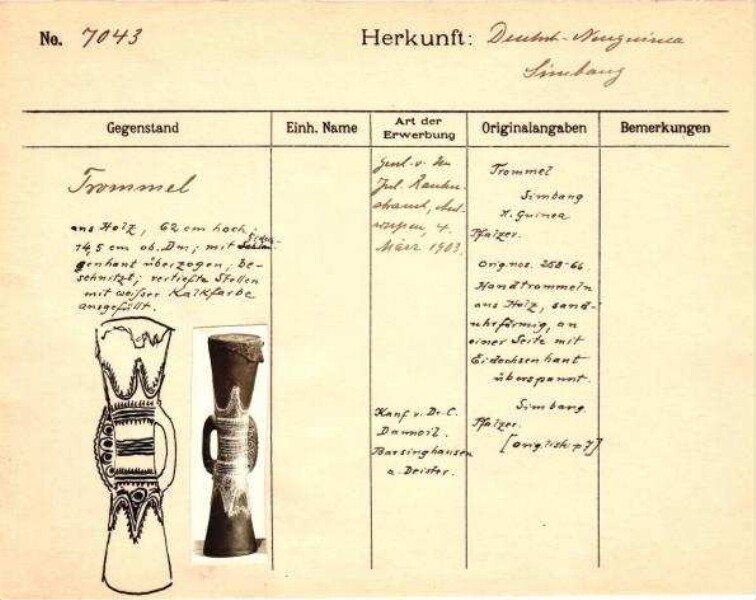 No. 7043
Herkunft: Deutsch-Neuguinea
Simbang
Gegenstand
Einh. Name
Art der
Erwerbung
Originalangaben
Bemerkungen
Trommel
aus Holz, 62 cm hoch;
14,5 cm ob. Dm; mit Eidech-
senhaut überzogen; be-
schnitzt; vertiefte Stellen
mit weißer Kalkfarbe
ausgefüllt.
Jul.
März 1903.
Kauf v. Dr. C.
Barsinghausen
a. Deister.
Trommel
Simbang
N. Guinea
Pfalzer.
Orig. nos. 258-66.
Handtrommeln
aus Holz, sand-
uhrförmig, an
einer Seite mit
Eidechsenhaut
überspannt.
Simbang.
Pfalzer.
[orig. list p 7]